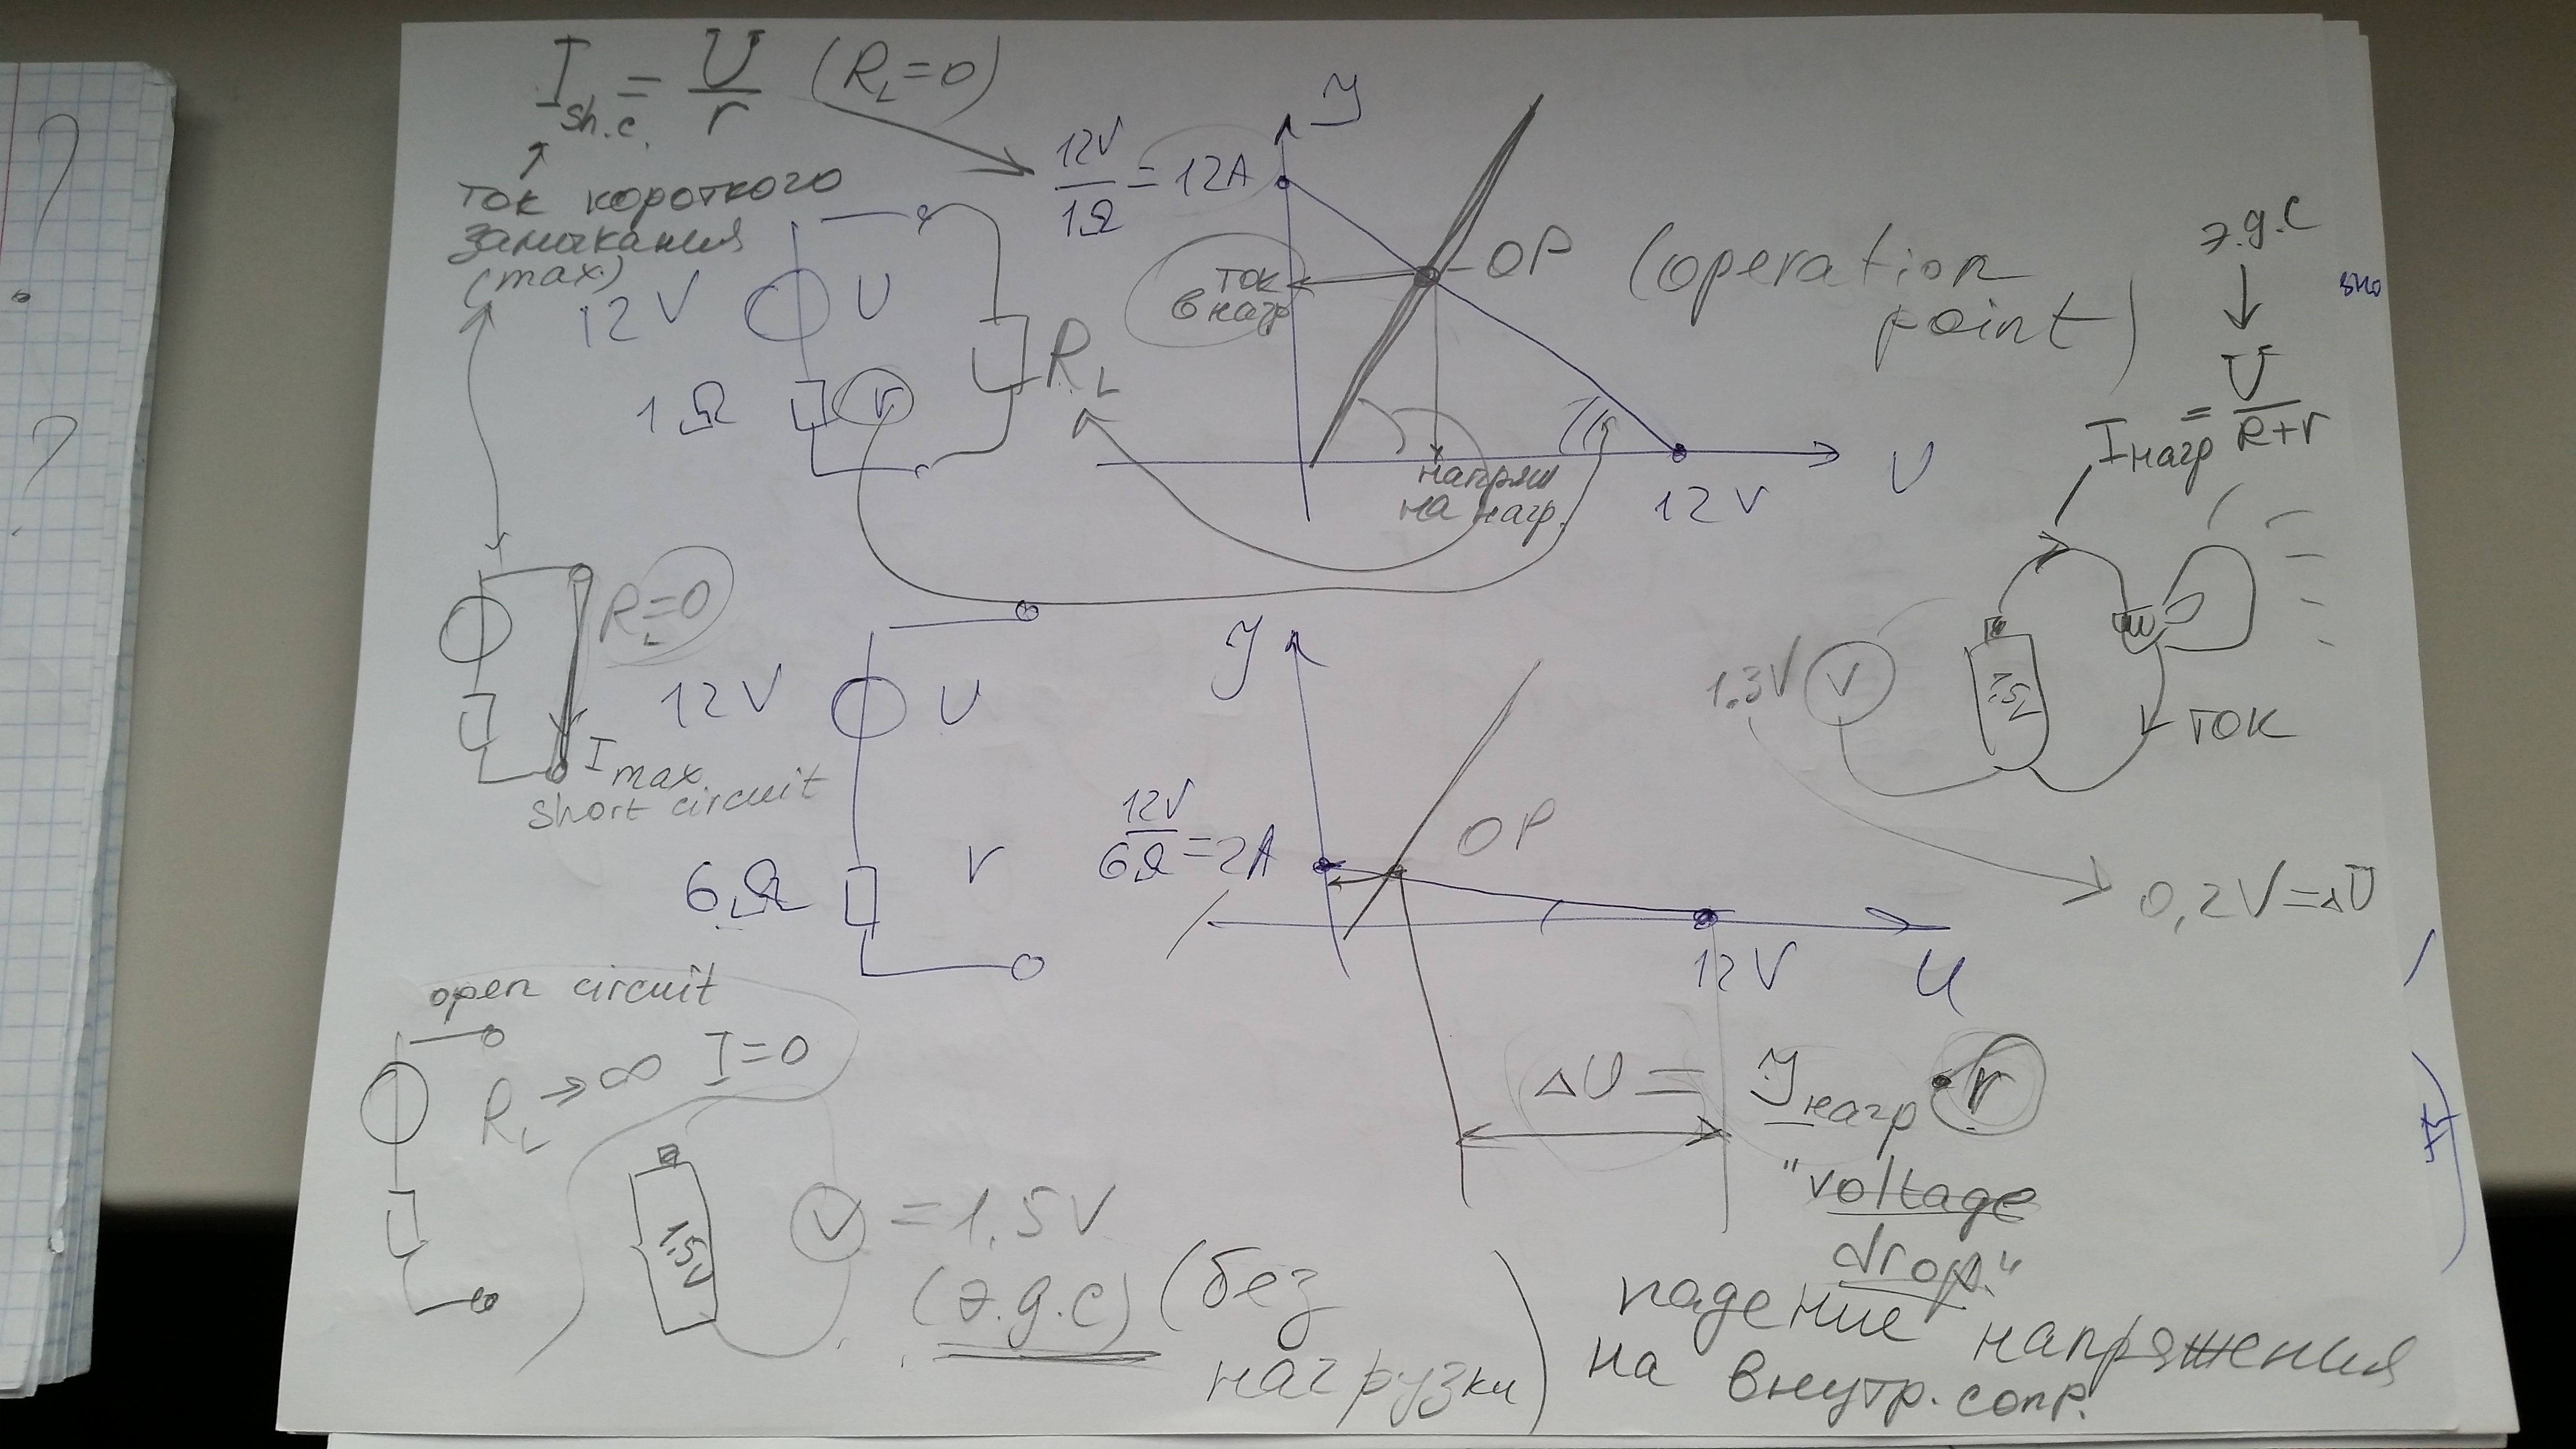 I sh.c. = U/r (R_L=0)
ток короткого
замыкания
(max)
12V U
1Ω r
R_L
12V/1Ω = 12A
I
ток
в нагр
OP (operation
point)
напряж
на нагр.
12V
U
э.д.с
↓
I нагр = U/(R+r)
R_L=0
I max
short circuit
12V U
6Ω r
I
12V/6Ω = 2A
OP
12V
U
1.3V V
1.5V
ток
0,2V=ΔU
open circuit
R_L → ∞ I=0
1.5V
V = 1.5V
(э.д.с) (без
нагрузки)
ΔU = I нагр • r
"voltage
drop."
падение напряжения
на внутр. сопр.
?
?